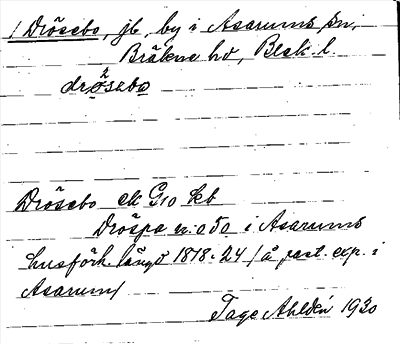 / Drösebo, jb, by i Asarums sn,
Bräkne hd, Blek. l.
drö̀szbo
Drösebo ek G10 kb
Dröspa n:o 50 i Asarums
husförh. längd 1818-24 /å past. exp. i
Asarum/
Tage Ahldén 1930